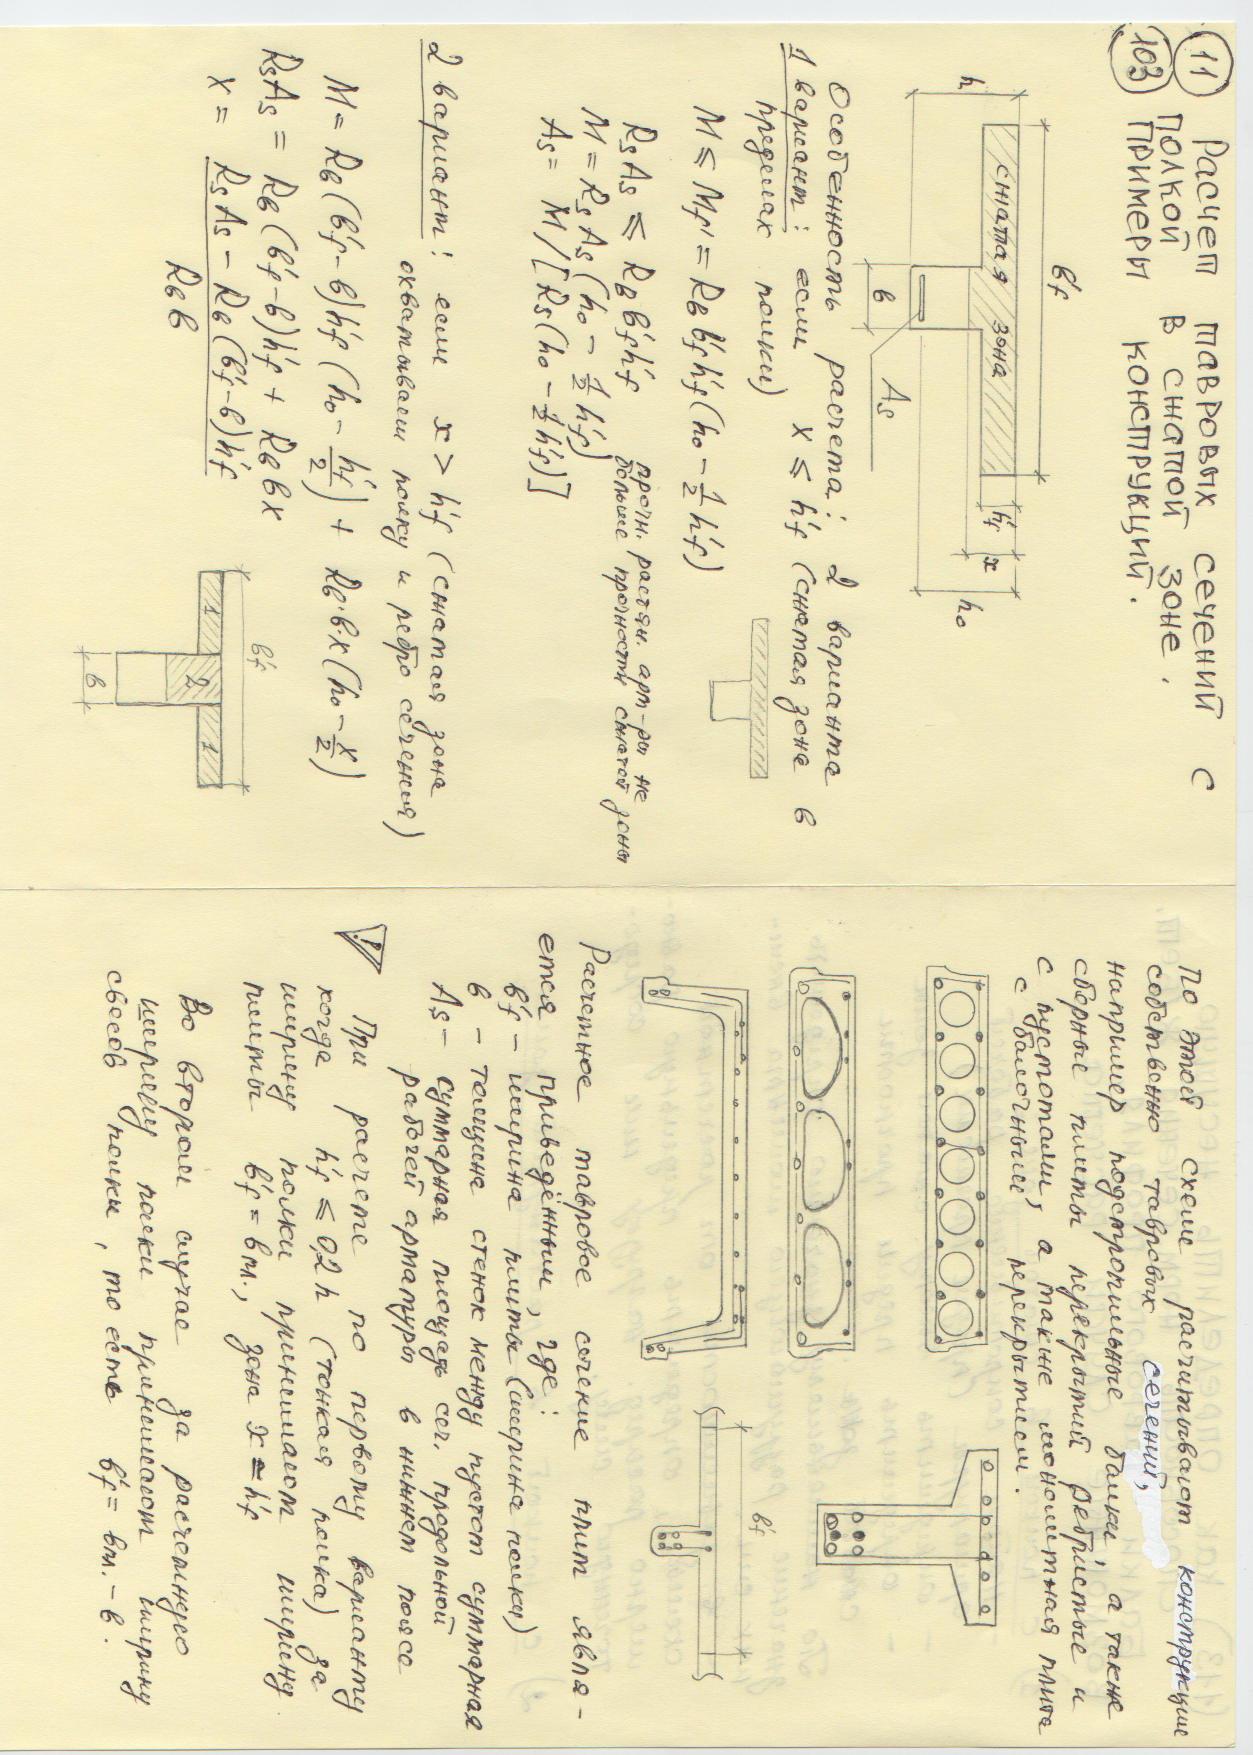 11
103
Расчет тавровых сечений с
полкой в сжатой зоне.
Примеры конструкций.
b'f
сжатая зона
h
h'f
x
h₀
b
As
Особенность расчета: 2 варианта
1 вариант: если x ≤ h'f (сжатая зона в
пределах полки)
M ≤ Mf' = Rв b'f h'f (h₀ - 1/2 h'f)
RsAs ≤ Rв b'f h'f
прочн. растян. арм-ры не
больше прочности сжатой зоны
M = RsAs (h₀ - 1/2 h'f)
As = M/[Rs(h₀ - 1/2 h'f)]
2 вариант: если x > h'f (сжатая зона
охватывает полку и ребро сечения)
M = Rв(b'f - b)h'f (h₀ - h'f/2) + Rв·b·x(h₀ - x/2)
RsAs = Rв(b'f - b)h'f + Rв b x
x = RsAs - Rв(b'f - b)h'f
Rв b
b'f
1 2 1
b
По этой схеме расчитывают конструкции
собственно тавровых сечений,
например подстропильные балки, а также
сборные плиты перекрытий ребристые и
с пустотами, а также монолитная плита
с балочным перекрытием.
b'f
Расчетное тавровое сечение плит явля-
ется приведённым, где:
b'f - ширина плиты (ширина полки)
b - толщина стенок между пустот суммарная
As - суммарная площадь сеч. продольной
рабочей арматуры в нижнем поясе
! При расчете по первому варианту
когда h'f ≤ 0,2h (тонкая полка) за
ширину полки принимают ширину
плиты b'f = bпл., зона x = h'f
Во втором случае за расчетную
ширину полки принимают ширину
свесов полки, то есть b'f = bпл. - b.